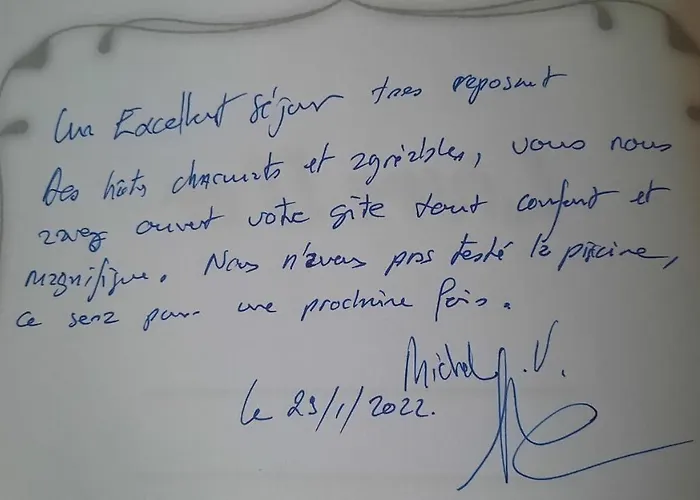 Un Excellent séjour très reposant
Des hôts charmants et agréables, vous nous
avez ouvert votre gîte tout confort et
magnifique. Nous n'avons pas testé la piscine,
ce sera pour une prochaine fois.
Michel . V.
le 29/1/2022.